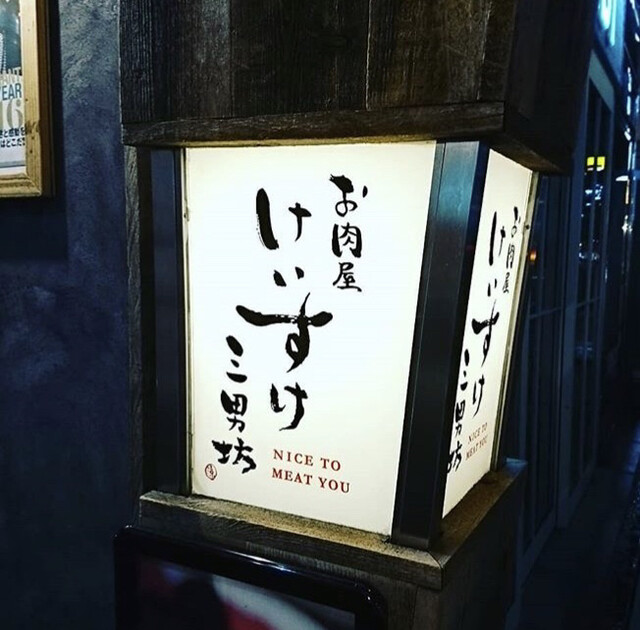 お肉屋
けいすけ
三男坊
NICE TO
MEAT YOU
お肉屋
けいすけ
三男坊
NICE TO
MEAT YOU
YEAR